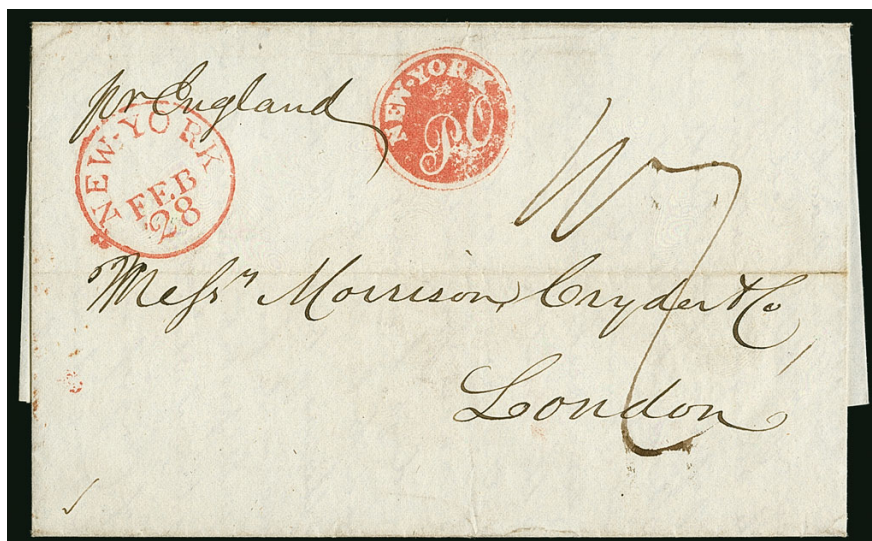 pr England
NEW-YORK
FEB
28
NEW-YORK
PO
Messrs Morrison, Cryder & Co,
London